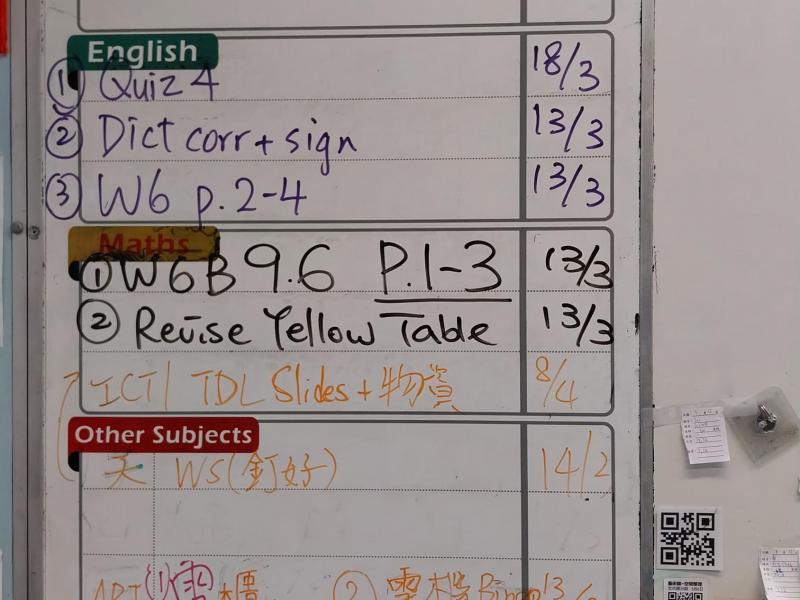 English
① Quiz 4 18/3
② Dict corr + sign 13/3
③ W6 p.2-4 13/3
Maths
① W6B 9.6 P.1-3 13/3
② Revise Yellow Table 13/3
ICT/ TDL Slides + 物資 8/4
Other Subjects
WS(釘好) 14/2